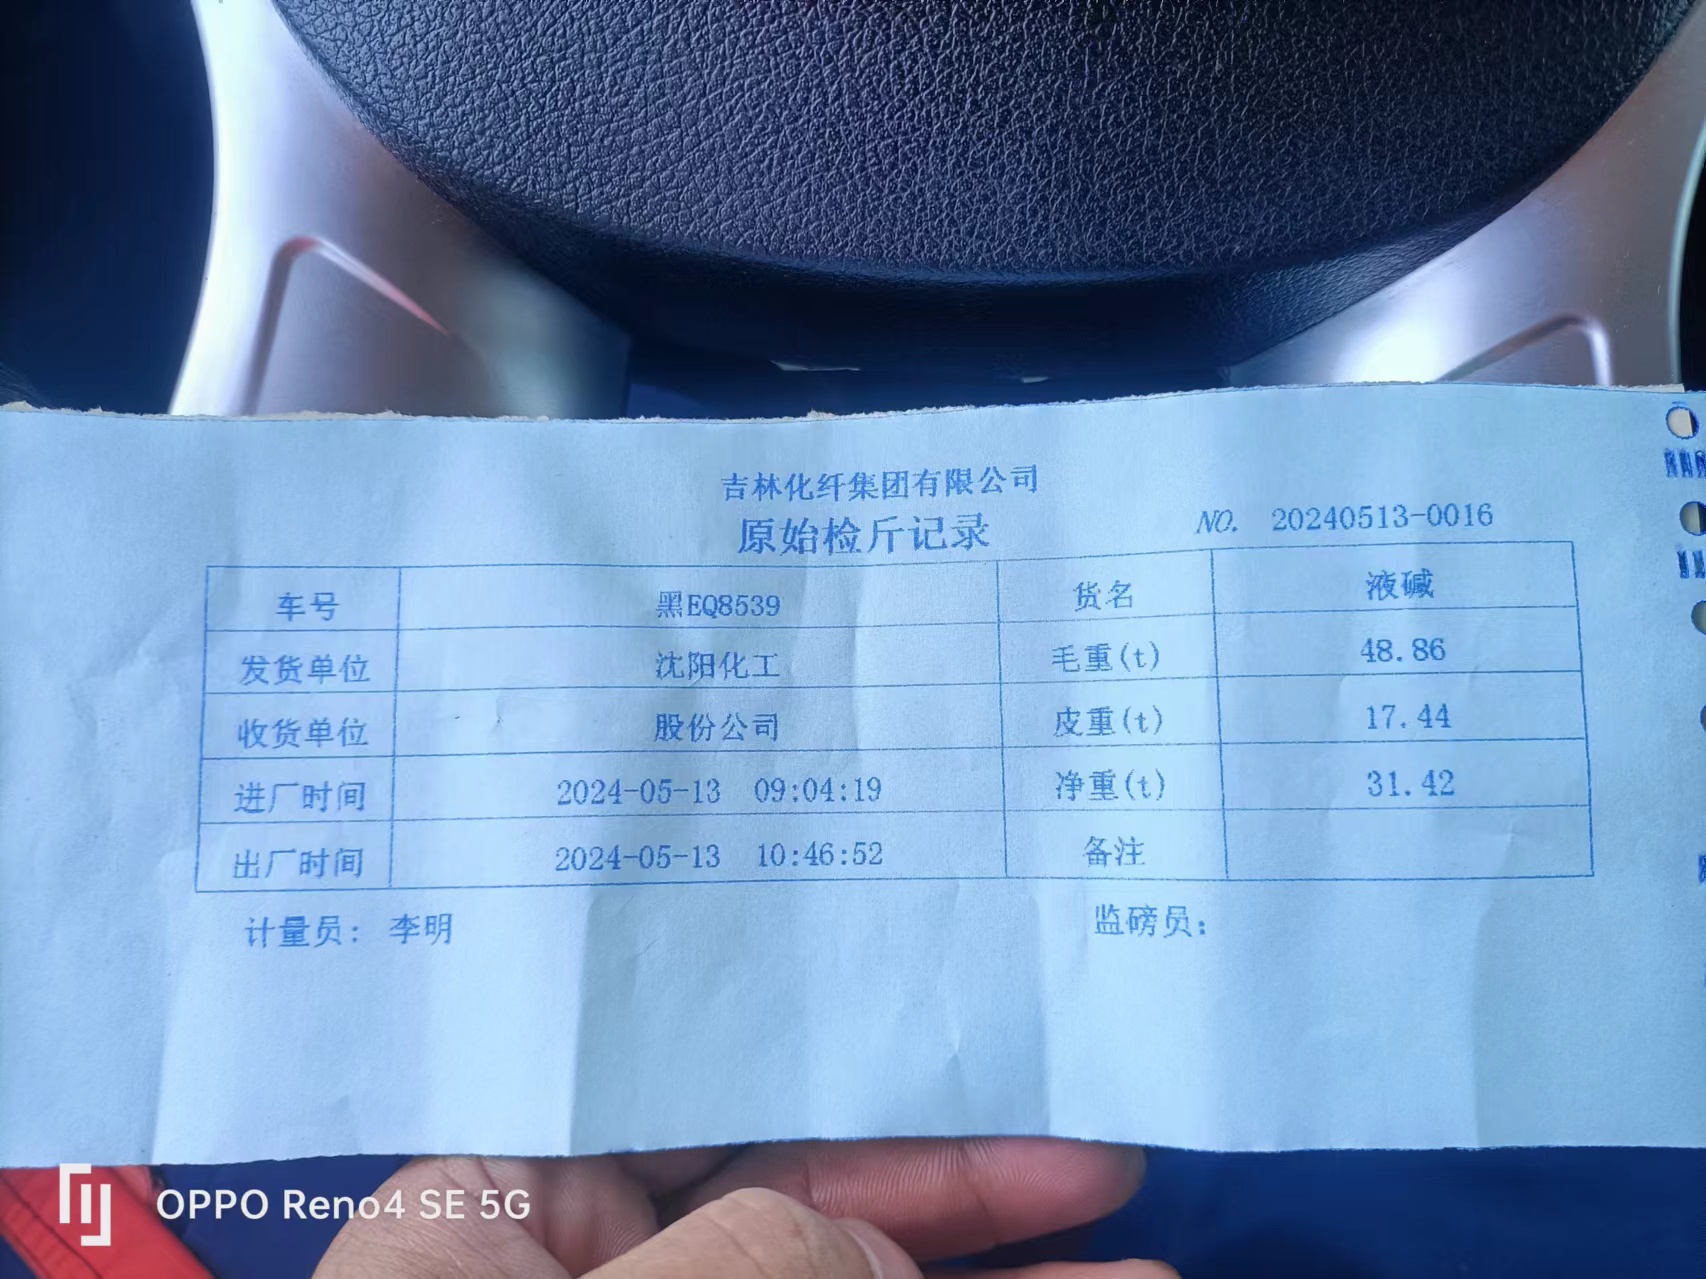 吉林化纤集团有限公司
原始检斤记录
NO. 20240513-0016
车号 黑EQ8539 货名 液碱
发货单位 沈阳化工 毛重(t) 48.86
收货单位 股份公司 皮重(t) 17.44
进厂时间 2024-05-13 09:04:19 净重(t) 31.42
出厂时间 2024-05-13 10:46:52 备注
计量员: 李明 监磅员:
OPPO Reno4 SE 5G